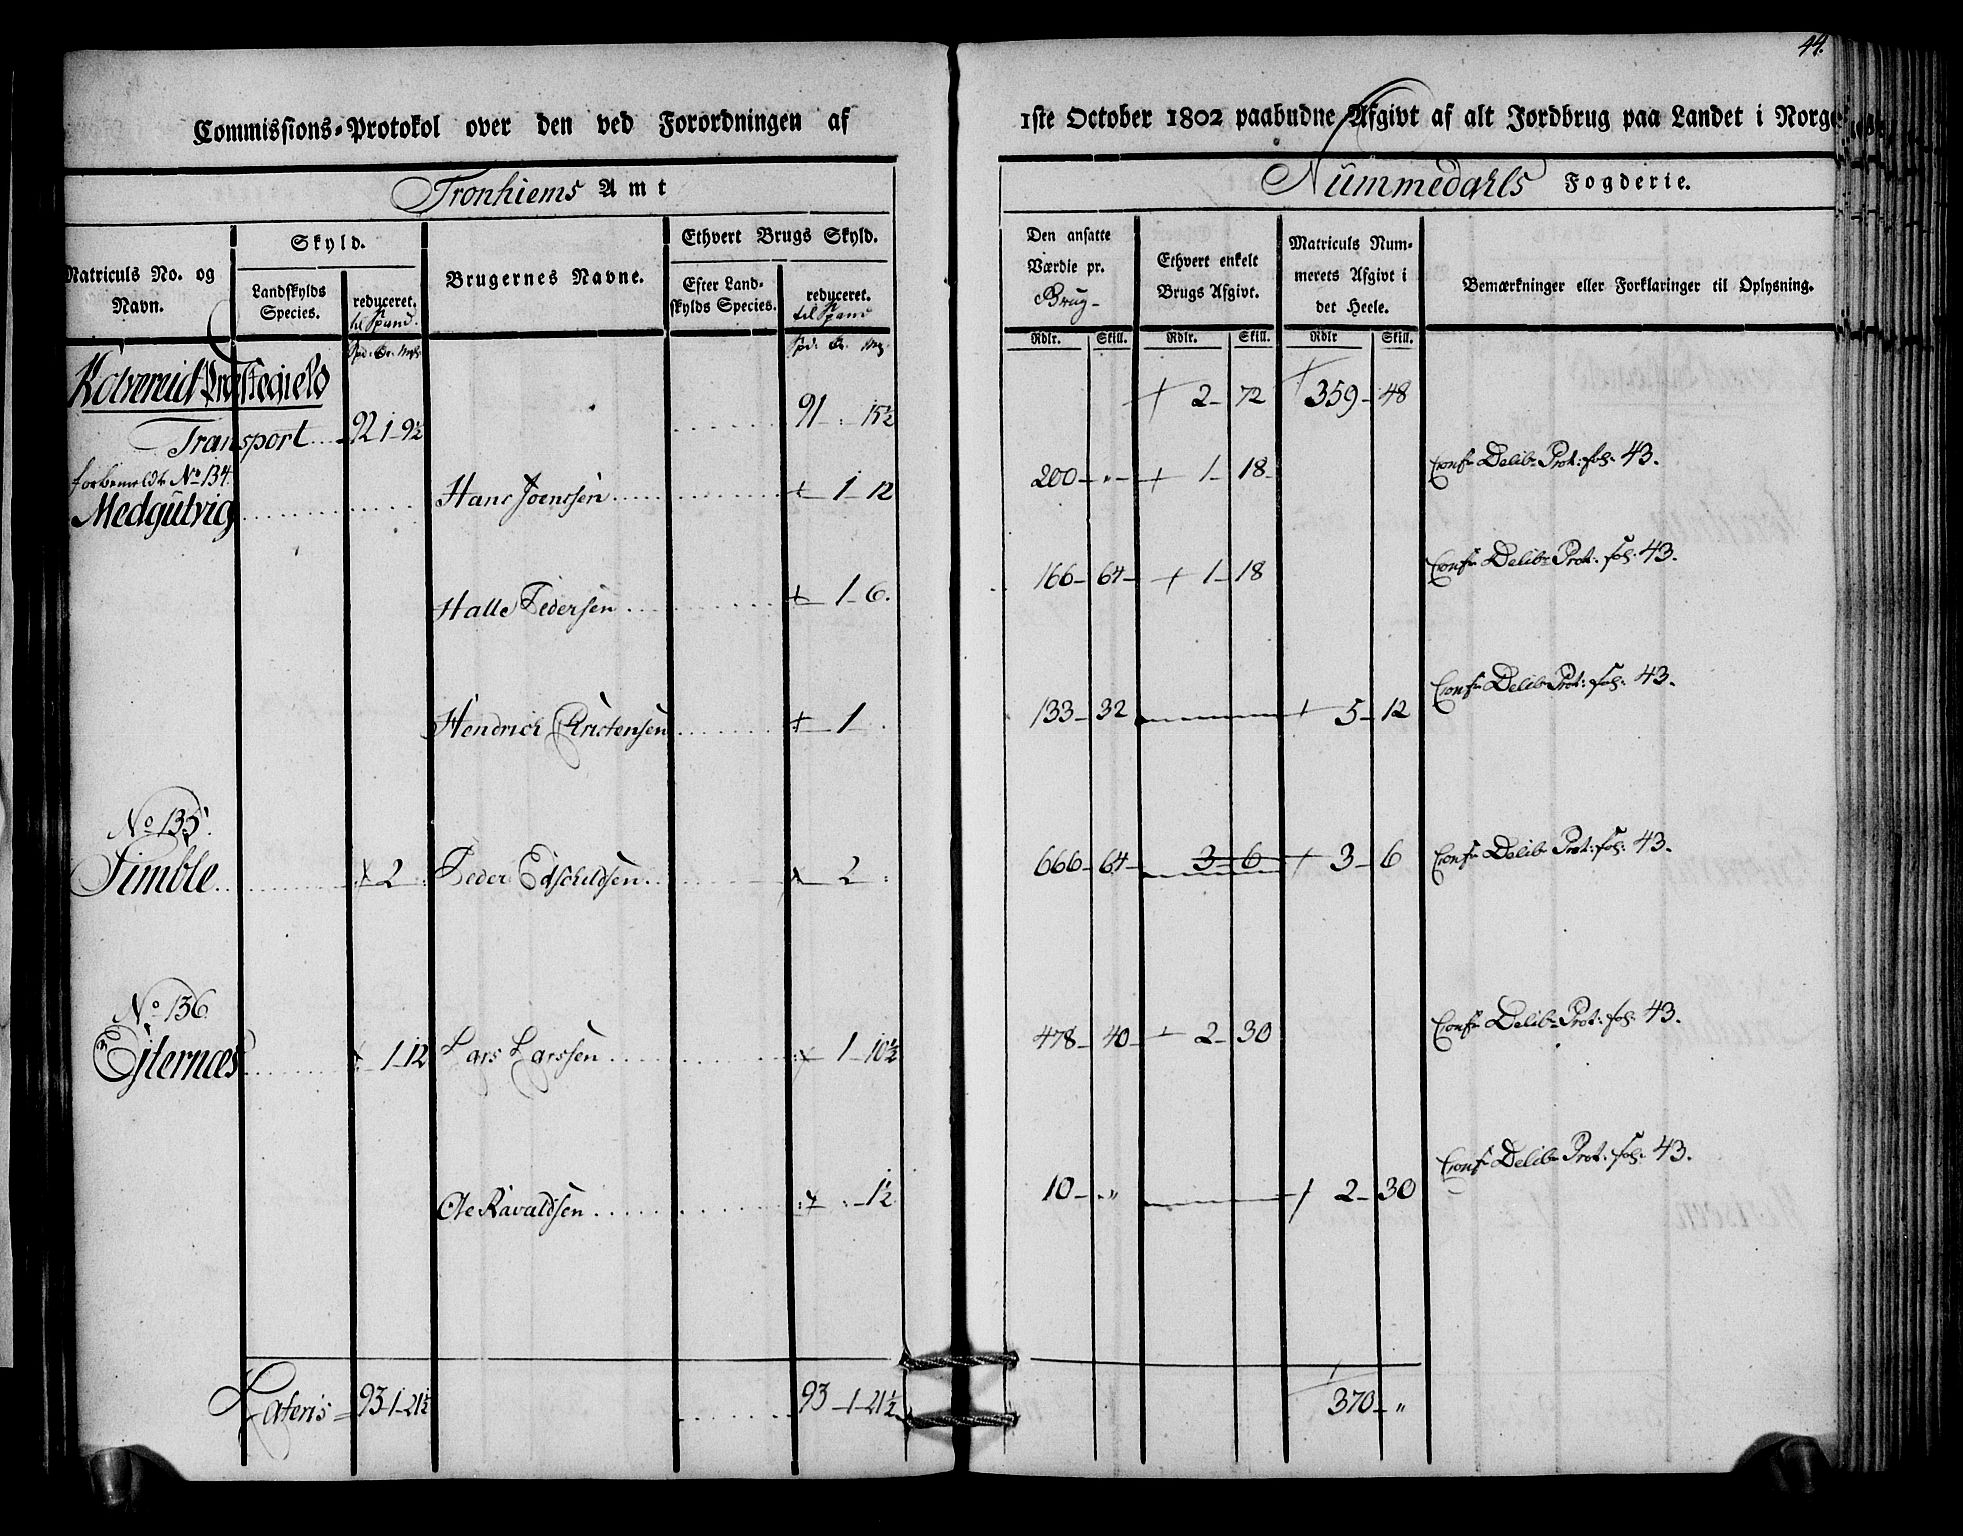 44.
Commissions-Protokol over den ved Forordningen af 1ste October 1802 paabudne Afgivt af alt Jordbrug paa Landet i Norge
Tronhiems Amt
Nummedahls Fogderie.
Matriculs No. og Navn.
Skyld.
Landskylds Species.
reduceret. til Spand.
Brugernes Navne.
Ethvert Brugs Skyld.
Efter Landskylds Species.
reduceret. til Spand
Den ansatte Værdie pr. Brug-
Ethvert enkelt Brugs Afgivt.
Matriculs Nummerets Afgivt i det Heele.
Bemærkninger eller Forklaringer til Oplysning.
Rdlr. Skill. Rdlr. Skill. Rdlr Skill.
Kolvereid Præstegield
Transport 92 1-9½ 91 - 15½ + 2- 72 + 359- 48
forbemeldte No 134.
Medgulvig Hans Joenssen + 1-12 200- " - + 1- 18- Conf Delib Prot: fol: 43.
Halle Pedersen + 1-6. 166- 64- + 1- 18 Conf Delib Prot: fol: 43.
Hendrich Christensen + 1 133- 32 + 5- 12 Conf Delib Prot: fol: 43.
No 135.
Simble + 2 Peder Edschildsen + 2 666- 64- 3- 6 + 3- 6 Conf Delib Prot: fol: 43.
No 136
Eiternæs + 1-12 Lars Larssen + 1-10½ 478- 40- + 2- 30 Conf Delib Prot: fol: 43.
Ole Ravaldsen + - 1½ 10- " + 2- 30 Conf Delib Prot: fol: 43.
Lateris 93-1-21½ 93-1-21½ 370- "